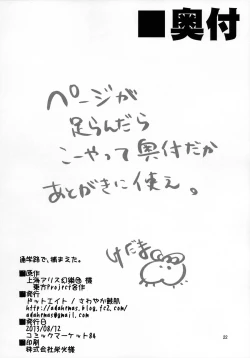 ■奥付
ページが
足らんだら
こーやって奥付だか
あとがきに使え。
けだま
通学路で、捕まえた。
■原作
上海アリス幻樂団 様
東方Project各作
■発行
ドットエイト / さわやか鮫肌
http://adahremas.blog.fc2.com/
adahremas@gmail.com
■発行日
2013/08/12
コミックマーケット84
■印刷
株式会社栄光様
22